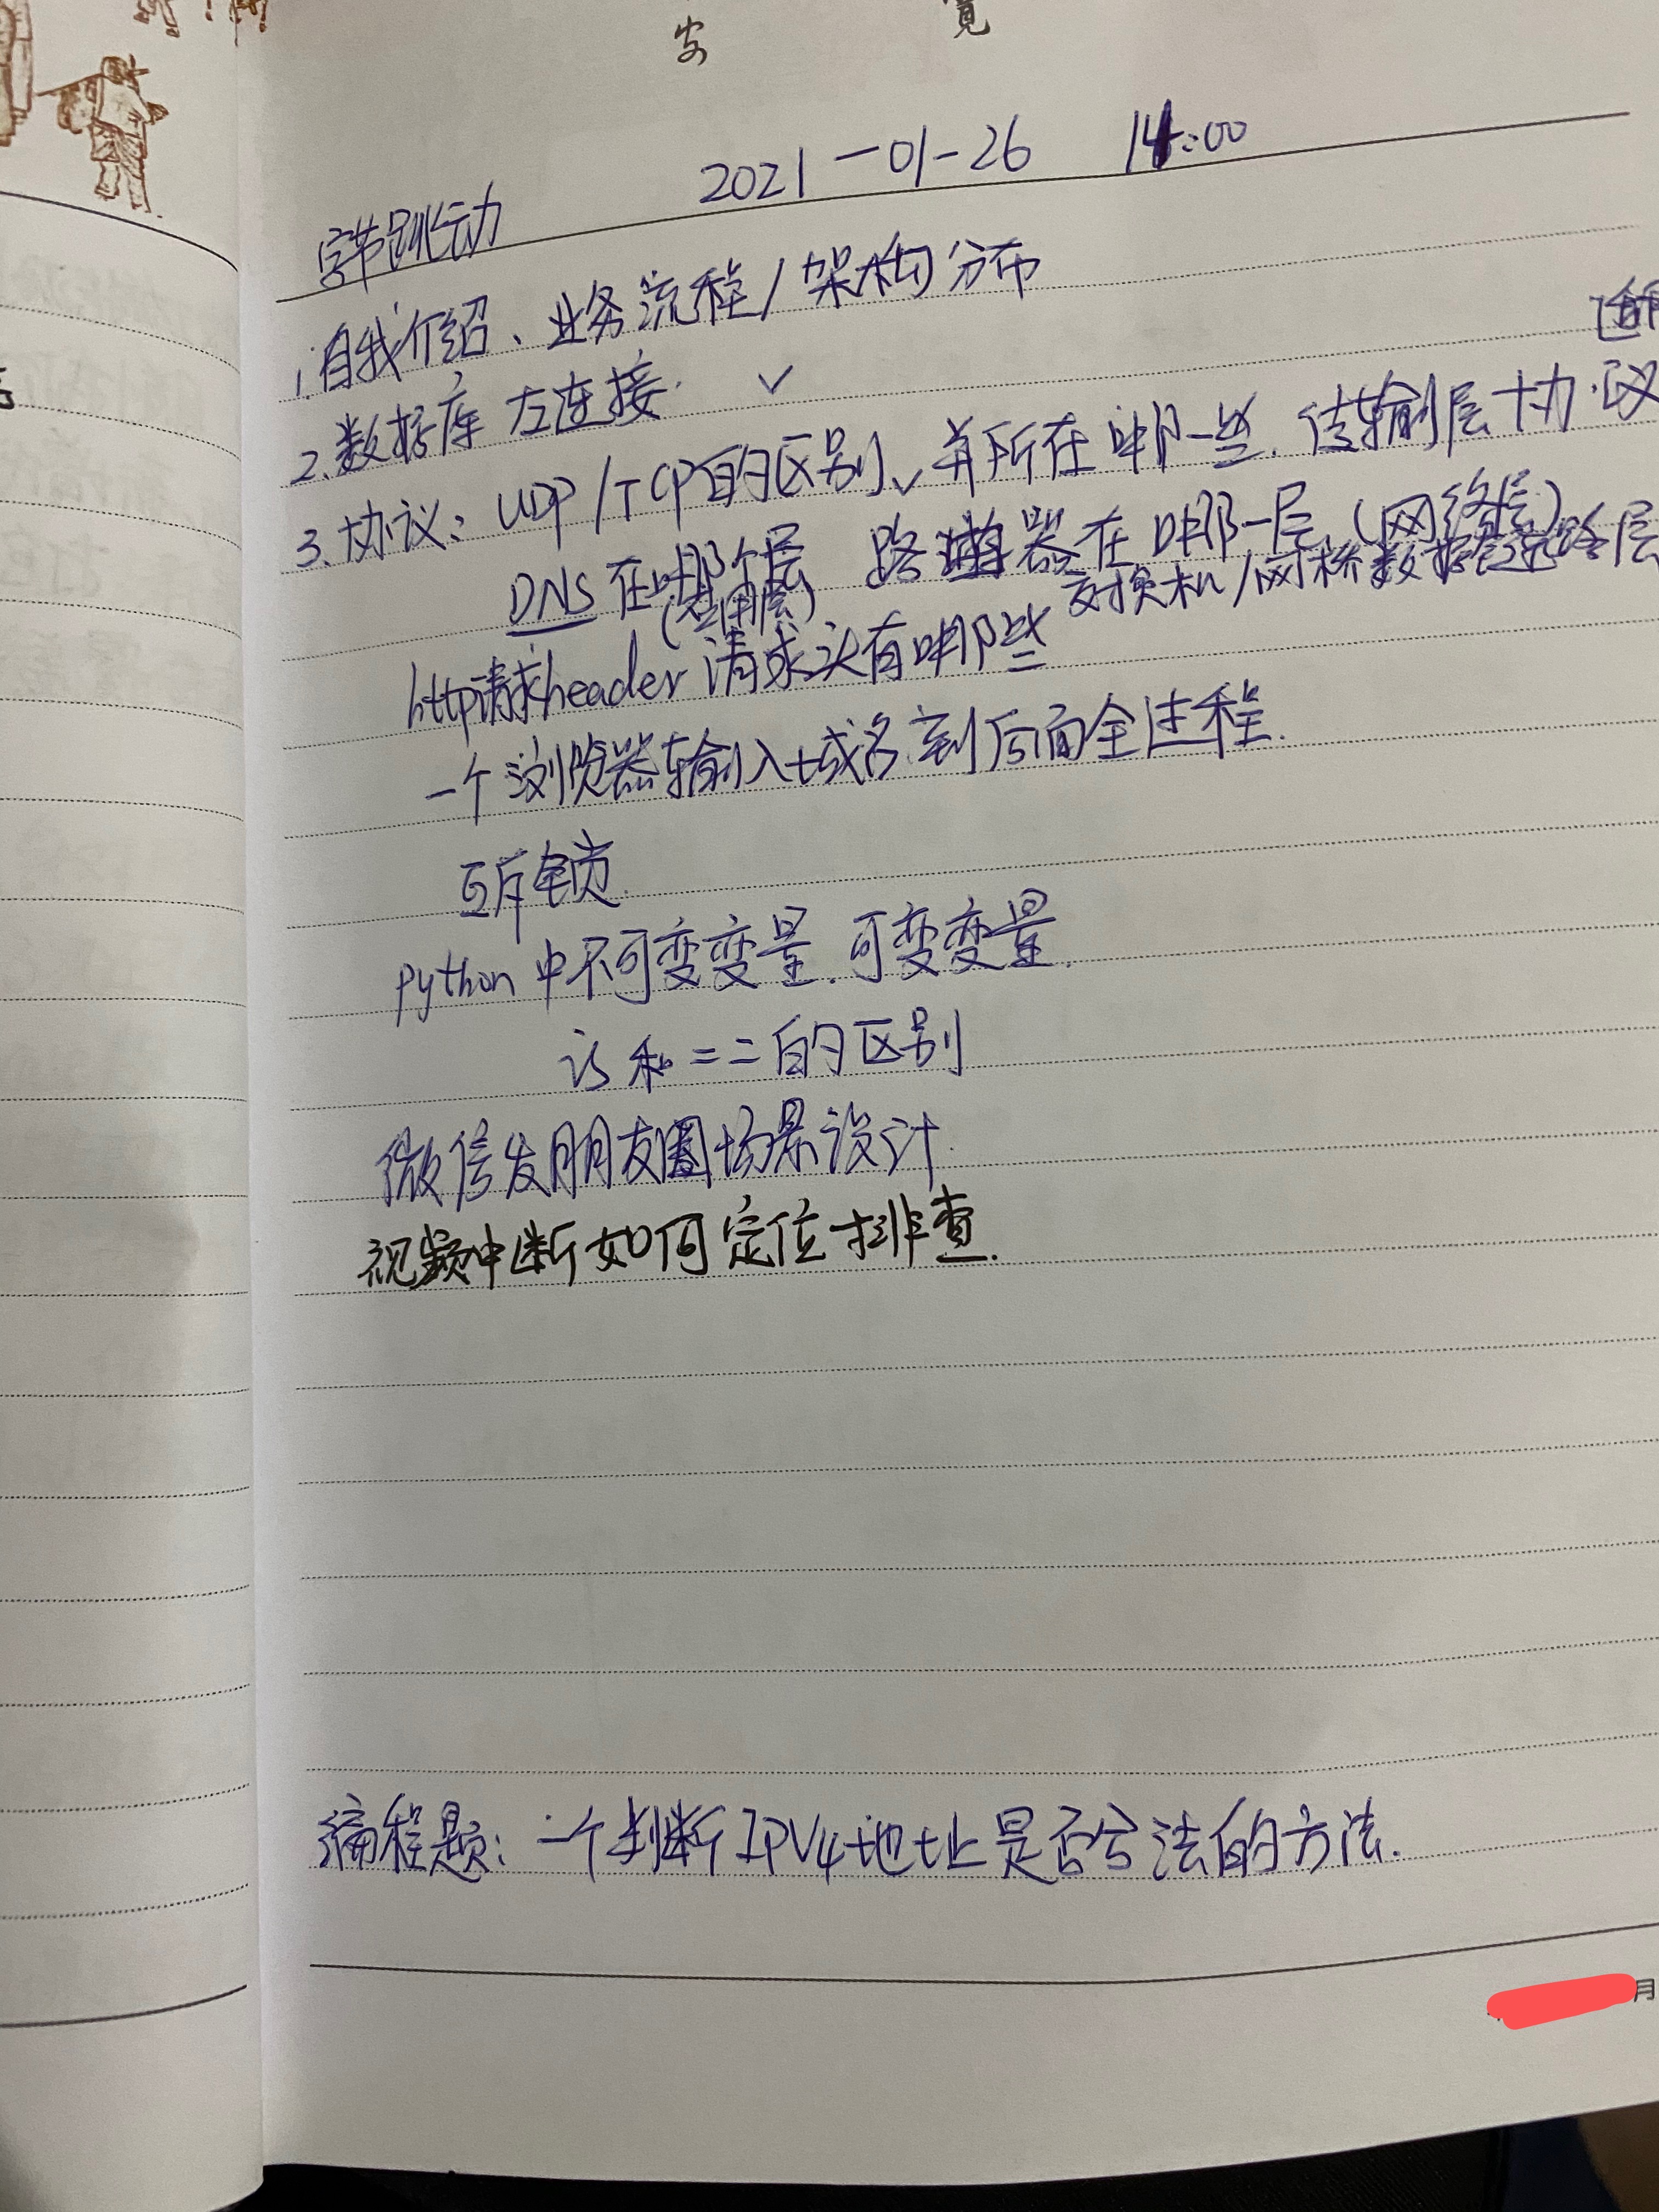 安 览
2021-01-26 14:00
字节跳动
1.自我介绍、业务流程/架构分布
2.数据库 左连接. ✓
3.协议: UDP/TCP的区别✓并所在哪一些.传输层协议
DNS在哪个层 路由器在哪一层(网络层)
(应用层) 交换机/网桥数据链路层
http请求header请求头有哪些
一个浏览器输入域名到后面全过程.
互斥锁.
python中不可变变量.可变变量.
is和==的区别
微信发朋友圈场景设计.
视频中断如何定位排查.
编程题:一个判断IPV4地址是否合法的方法.
月